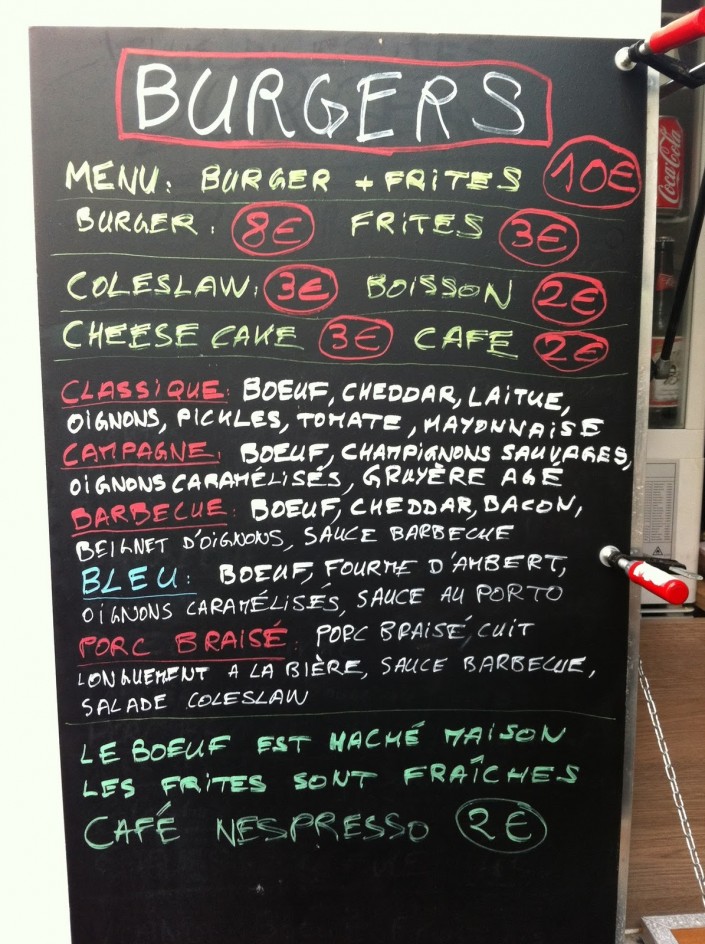 BURGERS
MENU: BURGER + FRITES 10€
BURGER: 8€ FRITES 3€
COLESLAW: 3€ BOISSON 2€
CHEESE CAKE 3€ CAFE 2€
CLASSIQUE: BOEUF, CHEDDAR, LAITUE,
OIGNONS, PICKLES, TOMATE, MAYONNAISE
CAMPAGNE: BOEUF, CHAMPIGNONS SAUVAGES,
OIGNONS CARAMÉLISÉS, GRUYÈRE AGE
BARBECUE: BOEUF, CHEDDAR, BACON,
BEIGNET D'OIGNONS, SAUCE BARBECUE
BLEU: BOEUF, FOURME D'AMBERT,
OIGNONS CARAMÉLISÉS, SAUCE AU PORTO
PORC BRAISÉ: PORC BRAISÉ, CUIT
LONGUEMENT A LA BIÈRE, SAUCE BARBECUE,
SALADE COLESLAW
LE BOEUF EST HACHÉ MAISON
LES FRITES SONT FRAÎCHES
CAFÉ NESPRESSO 2€
Coca-Cola